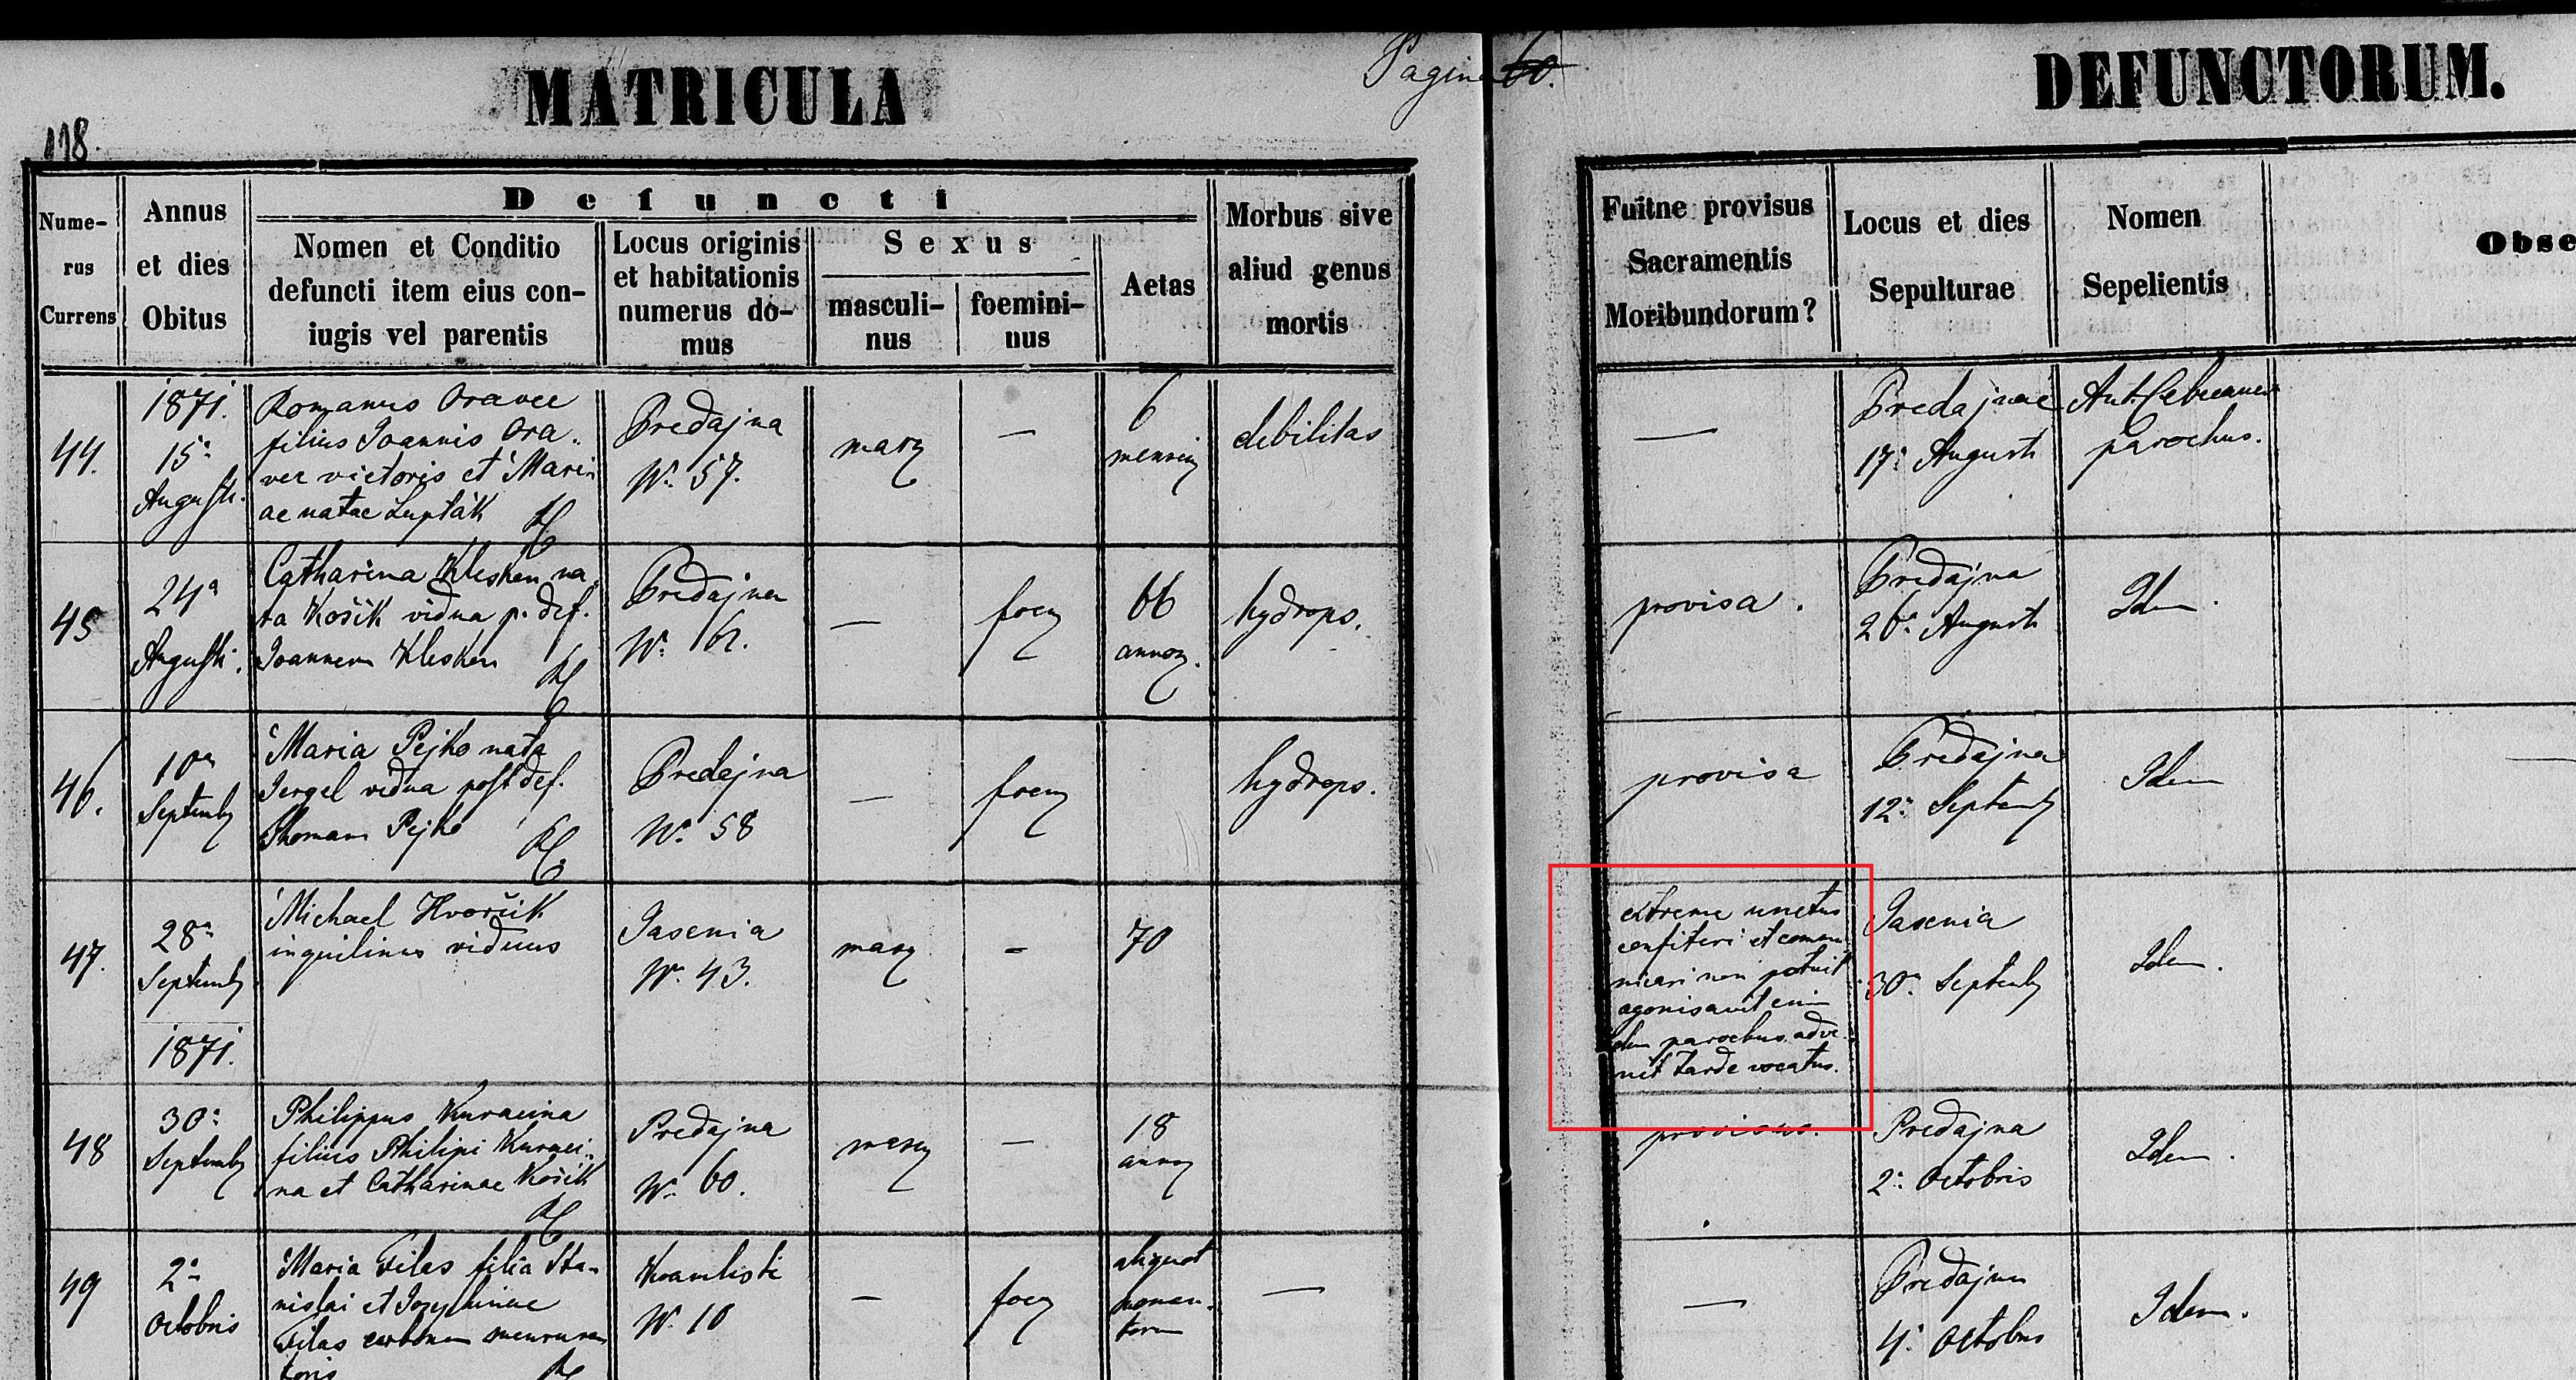 MATRICULA
Pagina 60.
DEFUNCTORUM.
118.
Nume-
rus
Currens
Annus
et dies
Obitus
Defuncti
Nomen et Conditio
defuncti item eius con-
iugis vel parentis
Locus originis
et habitationis
numerus do-
mus
Sexus
masculi-
nus
foemini-
nus
Aetas
Morbus sive
aliud genus
mortis
Fuitne provisus
Sacramentis
Moribundorum?
Locus et dies
Sepulturae
Nomen
Sepelientis
Obse
44.
1871.
15a
Augusti.
Romanus Oravec
filius Joannis Ora-
vec victoris et Mari-
ae natae Lupták
Predajna
N. 57.
masc
—
6
mensiu
debilitas
—
Predajnae
17a Augusti
Ant.
parochus.
45
24a
Augusti.
Catharina Klesken na-
ta Košik vidua p. def.
Joannem Klesken
Predajna
N. 62.
—
foem
66
annor.
hydrops.
provisa.
Predajna
26a Augusti
Idem.
46.
10a
Septemb
Maria Pejko nata
Jergel vidua post def.
Thomam Pejko
Predajna
N. 58
—
foem
hydrops.
provisa
Predajna
12a Septemb
Idem
—
47.
28a
Septemb
1871.
Michael Hvorčik
inquilinus viduus
Jasenia
N. 43.
masc
-
70
extreme unctus
confiteri et comu-
nicari non potuit
agonisavit enim
dum parochus adve-
nit tarde vocatus.
Jasenia
30a Septemb
Idem.
48
30a
Septemb
Philippus Kuracina
filius Philipi Kuraci-
na et Catharinae Košik
Predajna
N. 60.
masc
—
18
annor
provisus.
Predajna
2a Octobris
Idem.
49
2a
Octobris
Maria Filas filia Sta-
nislai et Josephinae
Filas carbonum mensura-
toris
N. 10
—
foem
aliquot
momen-
torum
—
—
Predajna
4a Octobris
Idem.